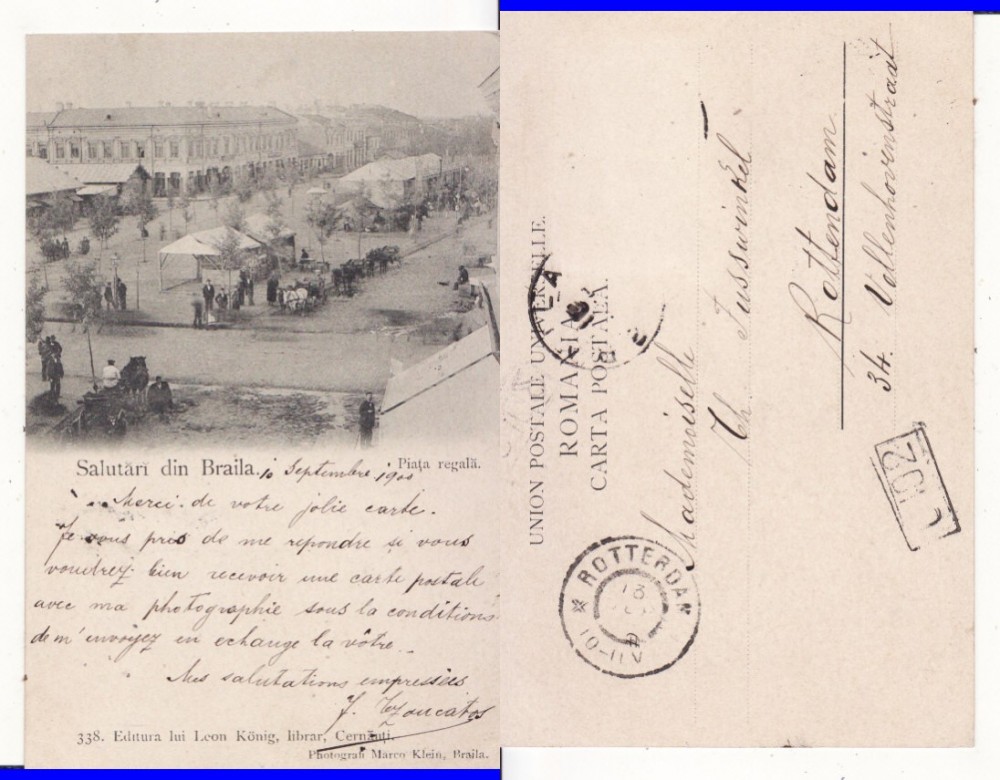 Salutări din Braila. 10 Septembre 1900 Piața regală.
Merci de votre jolie carte.
Je vous pries de me repondre si vous
voudrez bien recevoir une carte postale
avec ma photographie sous la conditions
de m'envoyez en echange la vôtre..
Mes salutations empressées
J.
338. Editura lui Leon König, librar, Cernăuți.
Photografi Marco Klein, Braila.
UNION POSTALE UNIVERSELLE.
ROMANIA
CARTA POSTALA.
Mademoiselle
Th. Fusswinkel
Rottendam
34. Vollenhovenstraat
ROTTERDAM
10-11V
202